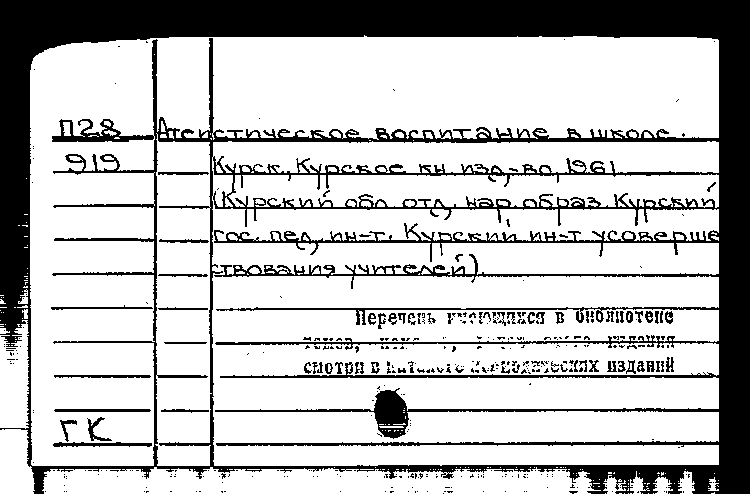 П28 Атеистическое воспитание в школе.
919 Курск., Курское кн. изд,-во, 1961
(Курский обл. отд. нар. образ. Курский
гос. пед. ин-т. Курский ин-т усоверше
ствования учителей).
Перечень имеющихся в библиотеке
томов, издания
смотри в каталоге периодических изданий
ГК